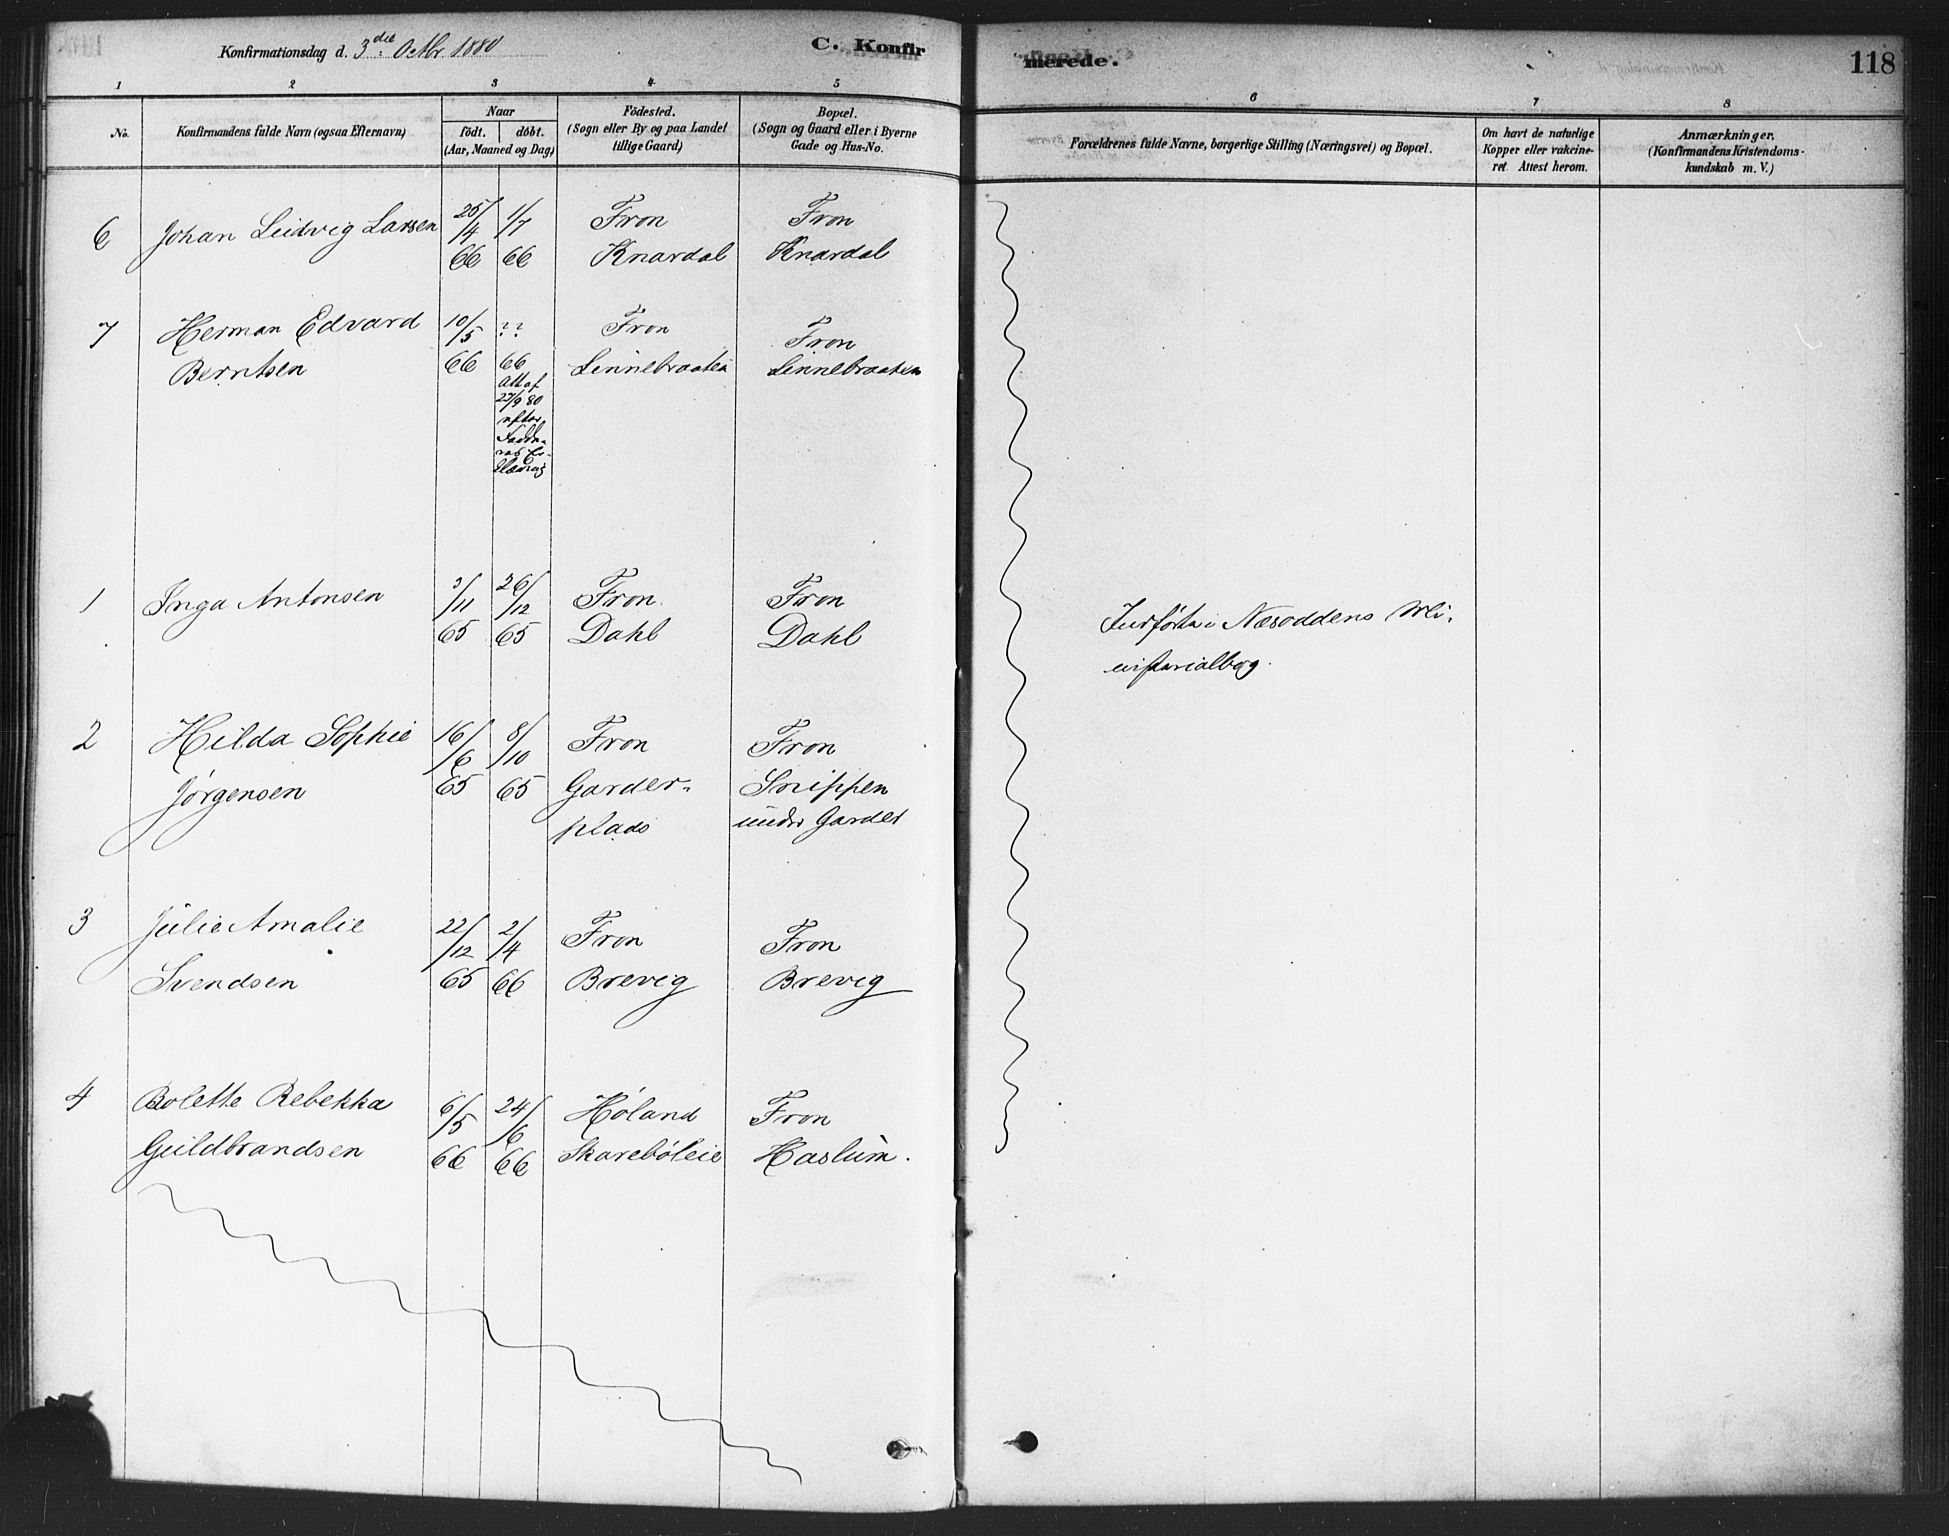 Konfirmationsdag d. 3die Octbr. 1880
C. Konfir
merede.
118
1 2 3 4 5 6 7 8
No.
Konfirmandens fulde Navn (ogsaa Efternavn)
Naar
födt. döbt.
(Aar, Maaned og Dag)
Födested.
(Sogn eller By og paa Landet
tillige Gaard)
Bopæl.
(Sogn og Gaard eller i Byerne
Gade og Hus-No.
Forældrenes fulde Navne, borgerlige Stilling (Næringsvei) og Bopæl.
Om havt de naturlige
Kopper eller vakcine-
ret. Attest herom.
Anmærkninger.
(Konfirmandens Kristendoms-
kundskab m. V.)
6 Johan Ludvig Larsen 25/4 1/7 Fron Fron
66 66 Knardal Knardal
7 Herman Edvard 10/5 ?? Fron Fron
Berntsen 66 66 Linnebraaten Linnebraaten
Att af
27/9 80
1 Inga Antonsen 3/11 26/12 Fron Fron
65 65 Dahl Dahl
Indførte i Næsoddens Mi-
nisterialbog.
2 Hilda Sophie 16/6 8/10 Fron Fron
Jørgensen 65 65 Garder- Snippen
plads under Garder
3 Julie Amalie 22/12 2/4 Fron Fron
Svendsen 65 66 Brevig Brevig
4 Bolette Rebekka 6/5 24/6 Høland Fron
Guldbrandsen 66 66 Skarebøleie Haslum.